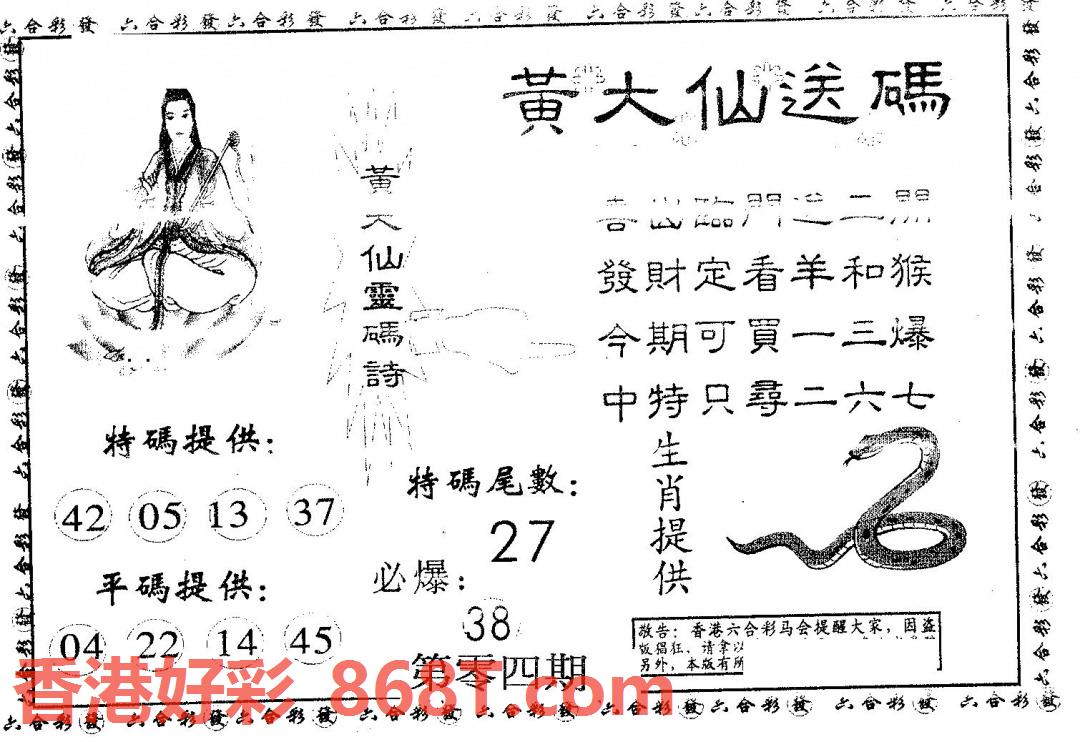 六合彩發 六合彩發 六合彩發 六合彩發 六合彩發 六合彩發 六合彩發 六合彩發
黃大仙送碼
黃大仙靈碼詩
發財定看羊和猴
今期可買一三爆
中特只尋二六七
生肖提供
特碼提供：
42 05 13 37
特碼尾數：
27
平碼提供：
必爆：
38
04 22 14 45
第零四期
敬告：香港六合彩马会提醒大家，因盗
版倡狂、请拿以
另外，本版有所
香港好彩 868T.com
六合彩發 六合彩發 六合彩發 六合彩發 六合彩發 六合彩發 六合彩發 六合彩發 六合彩發